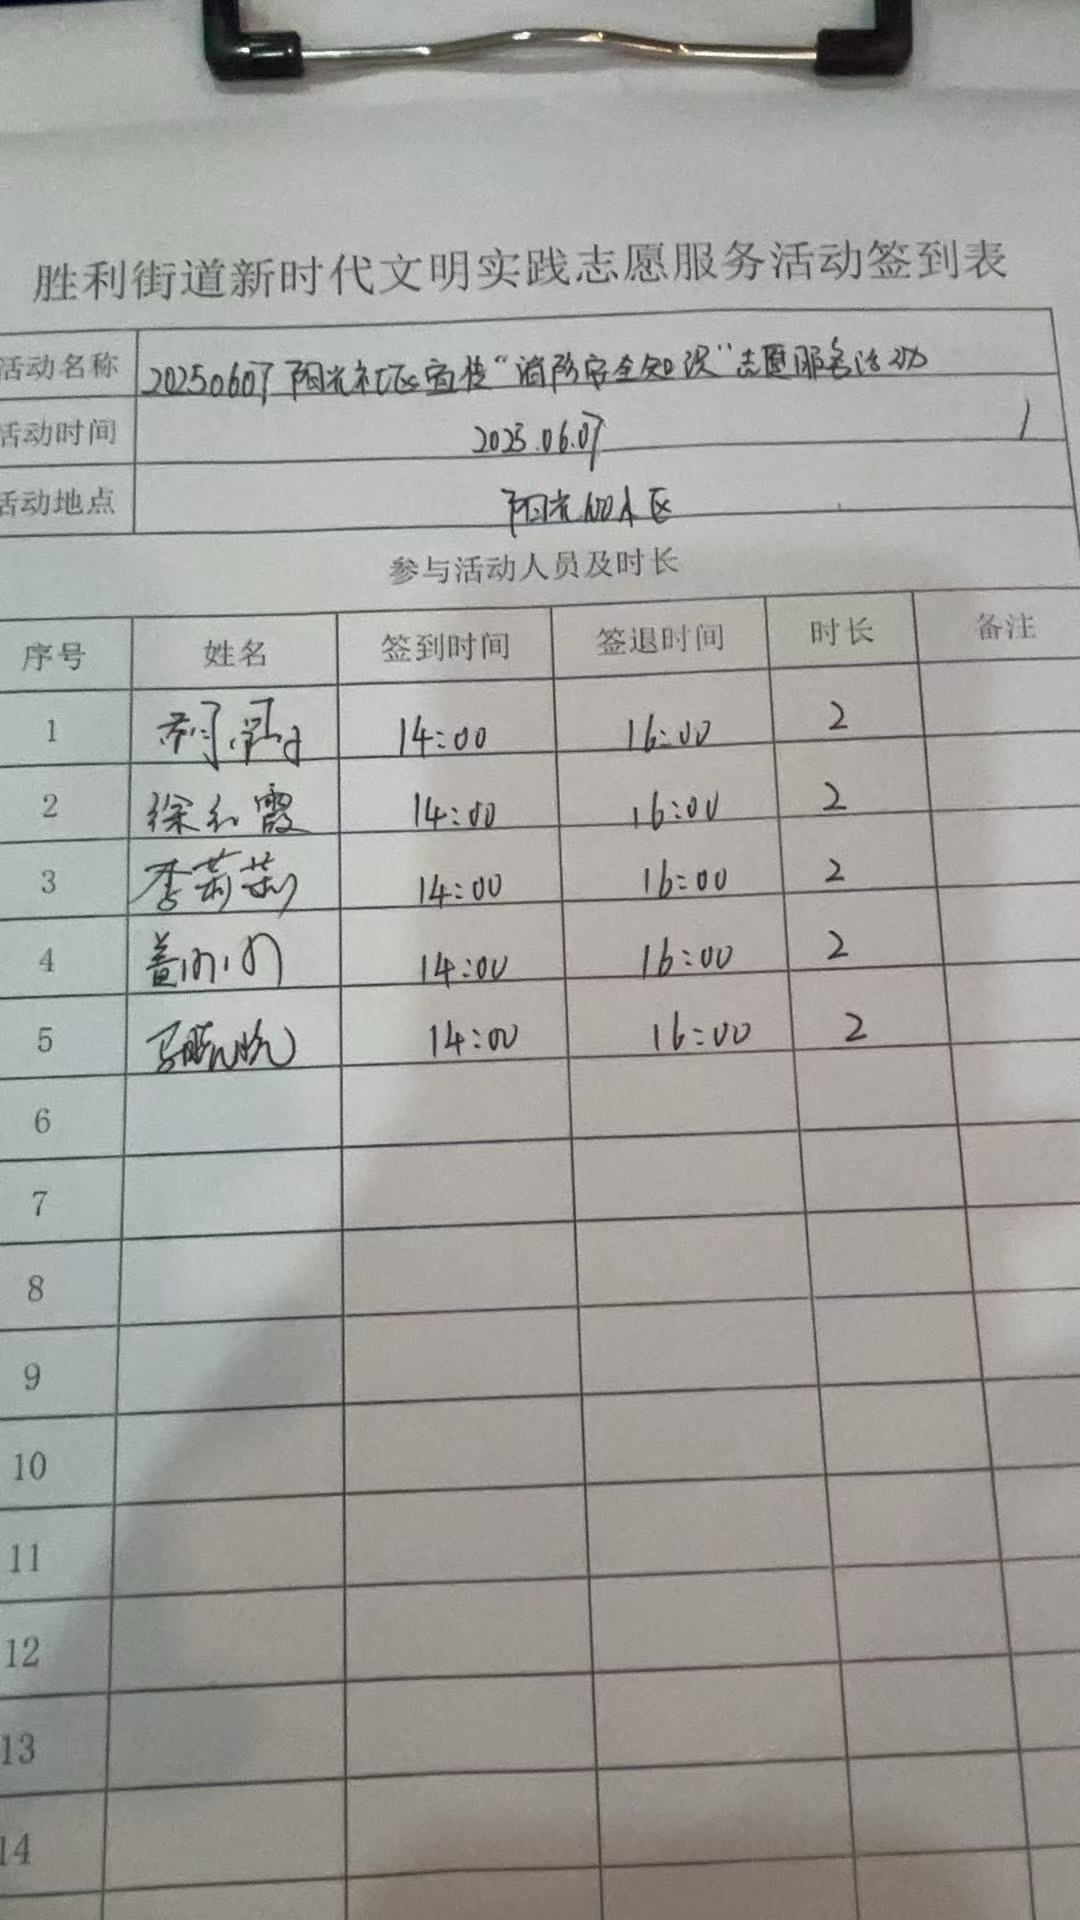 胜利街道新时代文明实践志愿服务活动签到表
活动名称 20250607阳光社区宣传“消防安全知识”志愿服务活动
活动时间 2025.06.07
活动地点 阳光100小区
参与活动人员及时长
序号 姓名 签到时间 签退时间 时长 备注
1 14:00 16:00 2
2 徐红霞 14:00 16:00 2
3 李莉莉 14:00 16:00 2
4 14:00 16:00 2
5 14:00 16:00 2
6
7
8
9
10
11
12
13
14